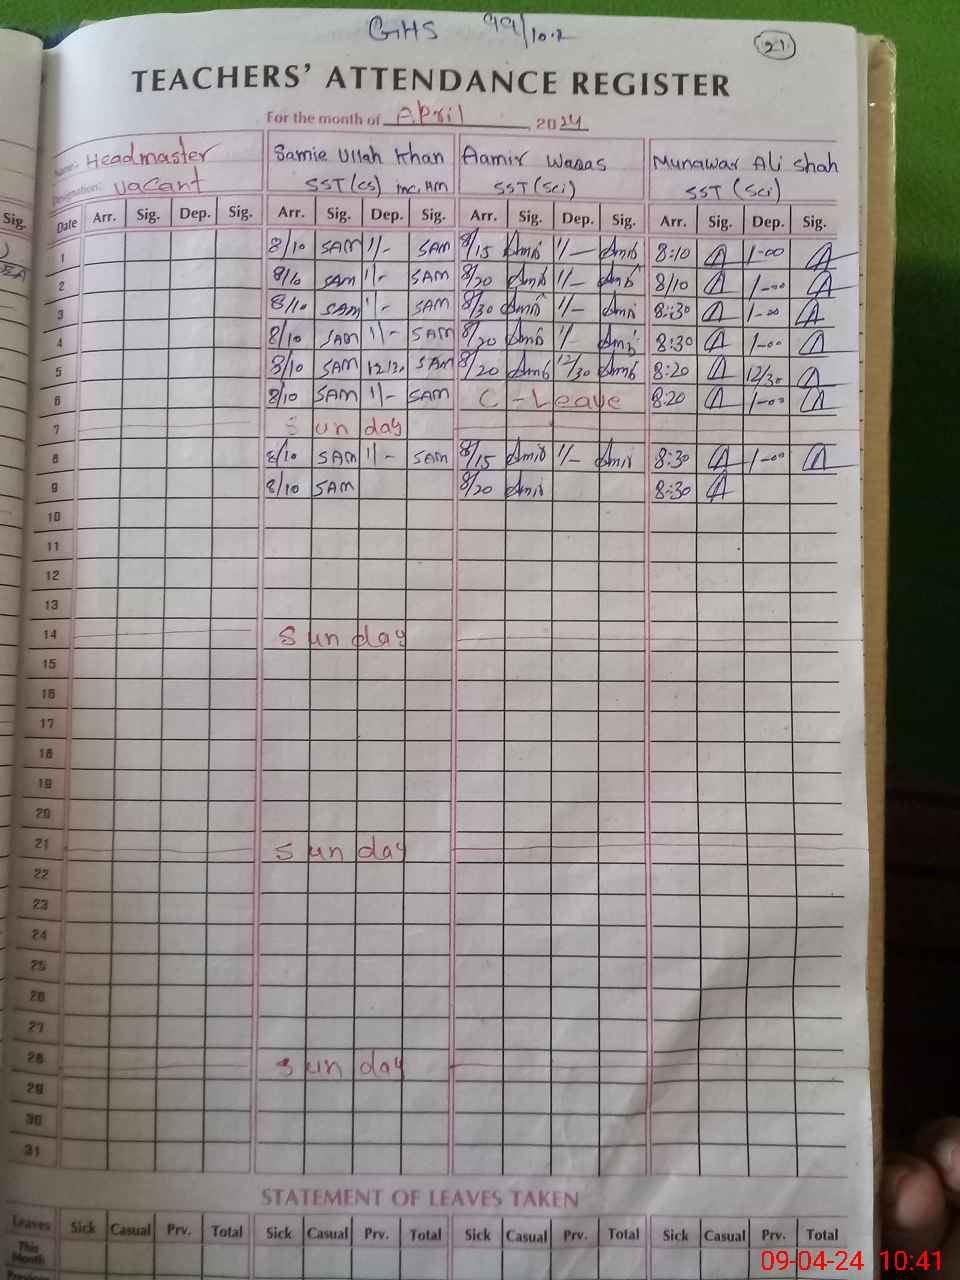 GHS 99/10.2
21
TEACHERS' ATTENDANCE REGISTER
For the month of April, 2024
Name: Headmaster Samie Ullah Khan Aamir Munawar Ali Shah
Designation: Vacant SST (CS) inc. HM SST (Sci) SST (Sci)
Sig. Date Arr. Sig. Dep. Sig. Arr. Sig. Dep. Sig. Arr. Sig. Dep. Sig. Arr. Sig. Dep. Sig.
1 8/10 SAM 1/- SAM 8/15 1/- 8:10 A 1-00 A
2 8/10 SAM 1/- SAM 8/20 1/- 8/10 A 1-00 A
3 8/10 SAM 1/- SAM 8/30 1/- 8:30 A 1-00 A
4 8/10 SAM 1/- SAM 8/20 1/- 8:30 A 1-00 A
5 8/10 SAM SAM 8/20 12/30 8:20 A 12/30 A
6 8/10 SAM 1/- SAM C-Leave 8:20 A 1-00 A
7 Sunday
8 8/10 SAM 1/- SAM 8/15 1/- 8:30 A 1-00 A
9 8/10 SAM 8/20 8:30 A
10
11
12
13
14 Sunday
15
16
17
18
19
20
21 Sunday
22
23
24
25
26
27
28 Sunday
29
30
31
STATEMENT OF LEAVES TAKEN
Leaves Sick Casual Prv. Total Sick Casual Prv. Total Sick Casual Prv. Total Sick Casual Prv. Total
This Month
Previous
09-04-24 10:41